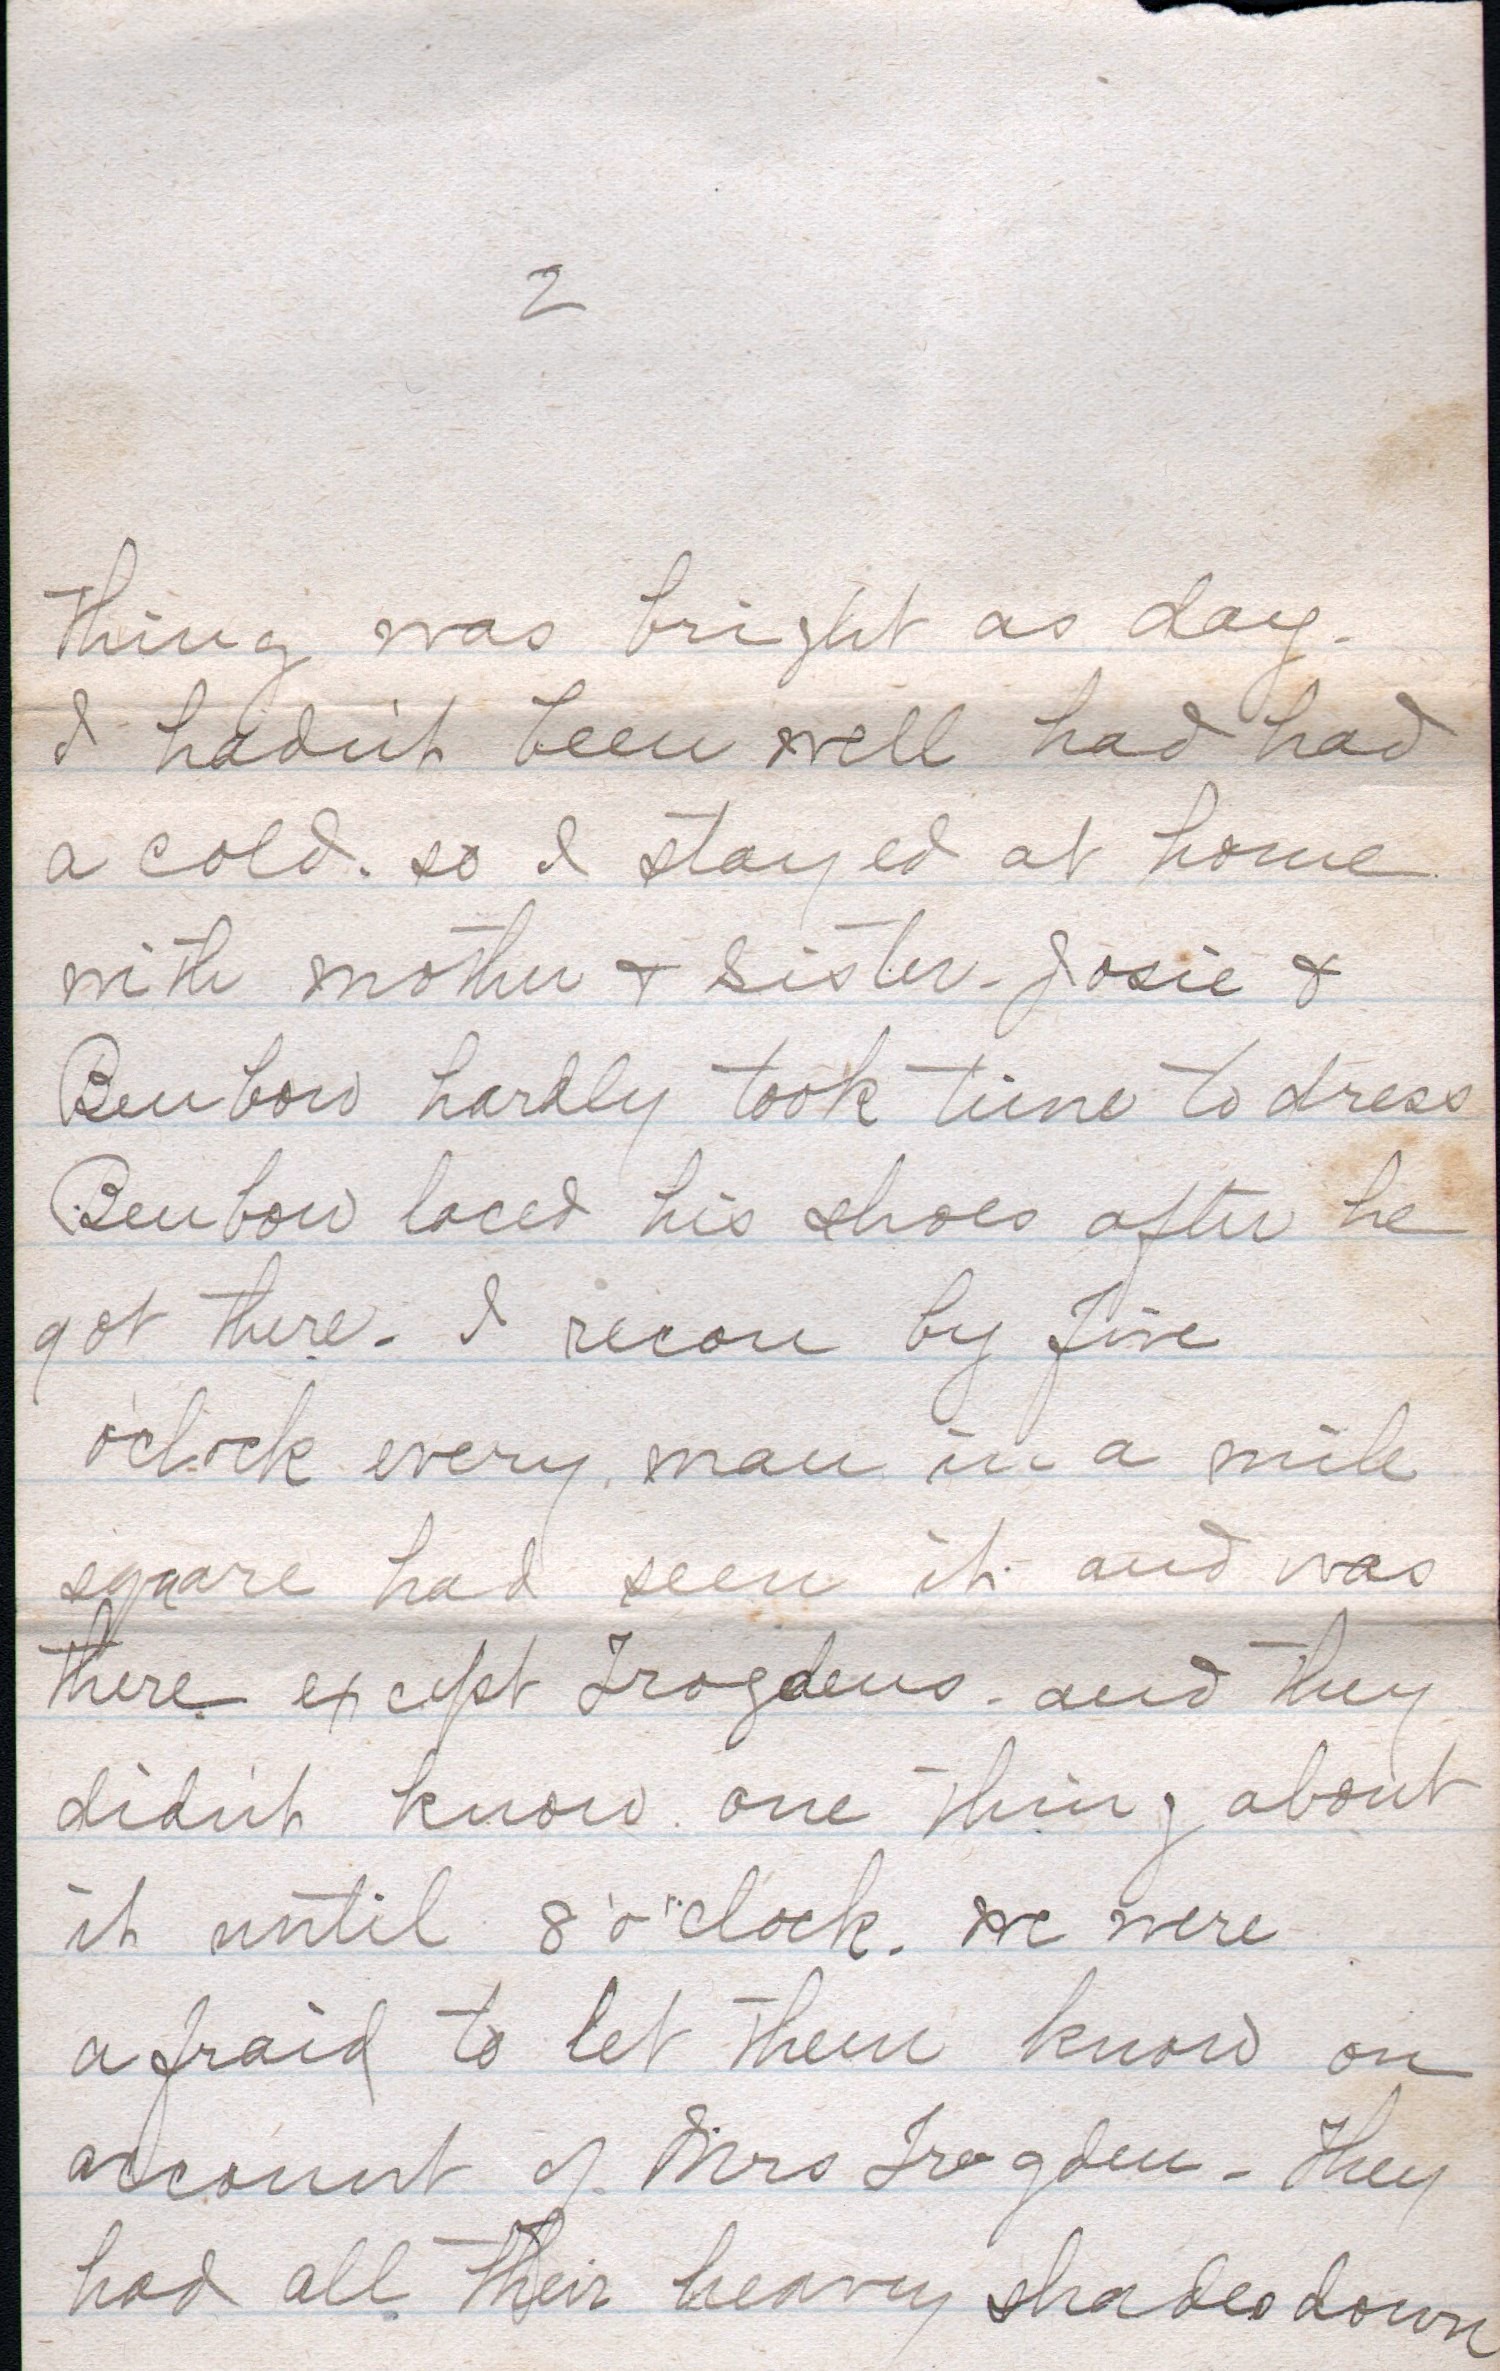 2
thing was bright as day.
I hadn't been well had had
a cold. so I stayed at home
with mother & sister - Josie &
Benbow hardly took time to dress
Benbow laced his shoes after he
got there - I recon by five
o'clock every man in a mile
square had seen it and was
there except Trogdens - and they
didn't know one thing about
it until 8 o'clock. we were
afraid to let them know on
account of Mrs Trogden - They
had all their heavy shades down